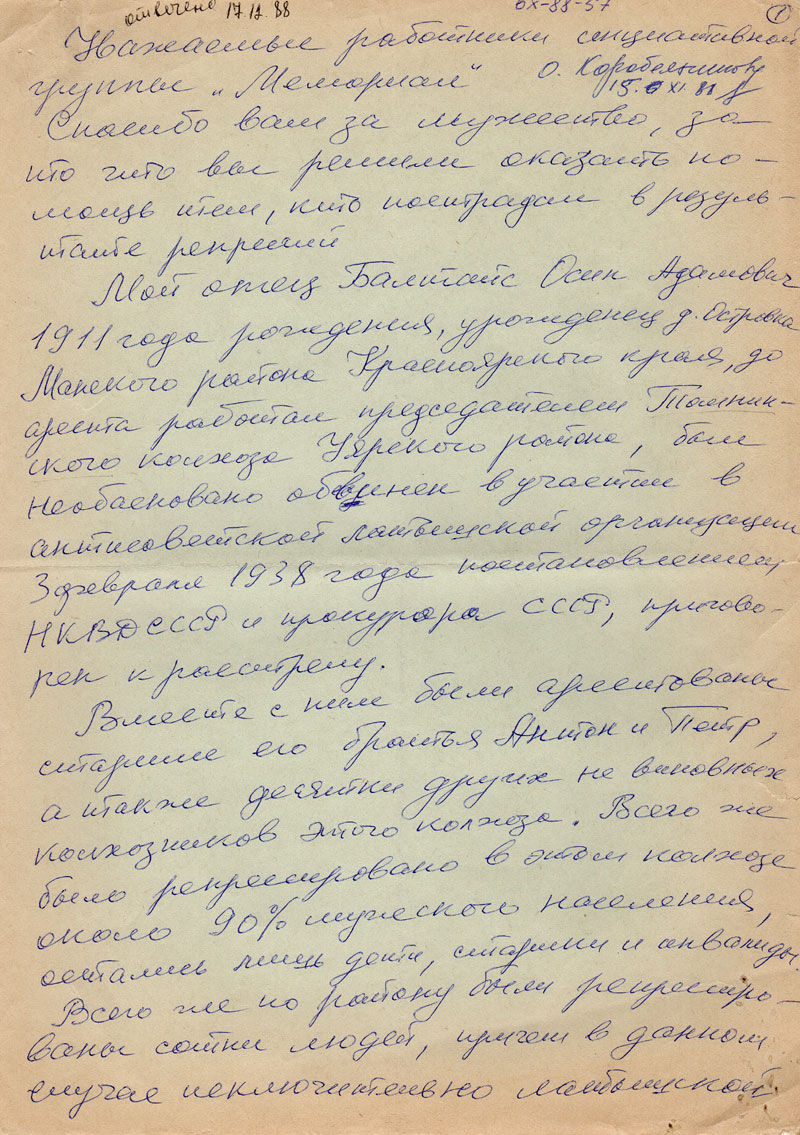 отвечено 17.12.88
ОХ-88-57
1
Уважаемые работники инициативной
группы „Мемориал“
О.
Спасибо вам за мужество, за
то что вы решили оказать по-
мощь тем, кто пострадал в резуль-
тате репрессий
Мой отец Балтайс Осип Адамович
1911 года рождения, уроженец д. Островка
Манского района Красноярского края, до
ареста работал председателем
ского колхоза Уярского района, был
необасновано обвинен в участии в
антисоветской латышской организации
3 февраля 1938 года постановлением
НКВД СССР и прокурора СССР, пригово-
рен к расстрелу.
Вместе с ним были арестованы
старшие его братья Антон и Петр,
а также десятки других не виновных
колхозников этого колхоза. Всего же
было репрессировано в этом колхозе
около 90% мужского населения,
остались лишь дети, старики и инвалиды.
Всего же по району были репрессиро-
ваны сотни людей, причем в данном
случае исключительно латышской